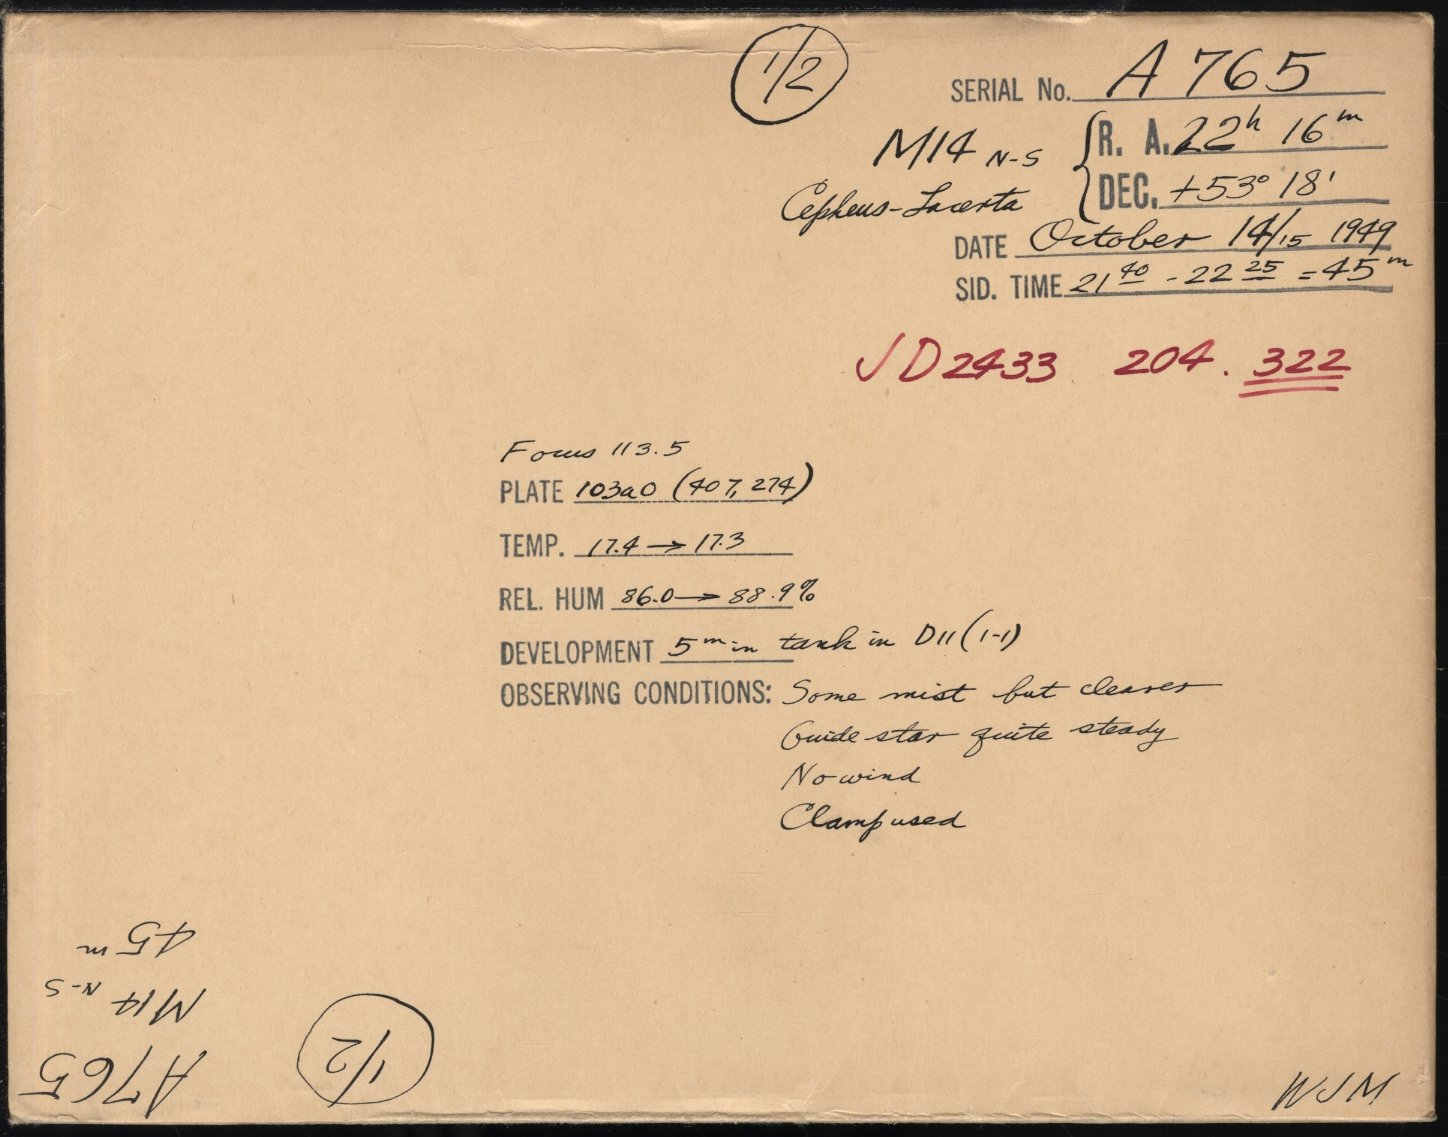 1/2
SERIAL No. A 765
M14 N-S
R. A. 22h 16m
Cepheus-Lacerta
DEC. +53° 18'
DATE October 14/15 1949
SID. TIME 21 40 - 22 25 = 45m
JD2433 204.322
Focus 113.5
PLATE 103a0 (407, 274)
TEMP. 17.4 → 17.3
REL. HUM 86.0 → 88.9%
DEVELOPMENT 5min tank in D11 (1-1)
OBSERVING CONDITIONS: Some mist but clearer
Guide star quite steady
No wind
Clamp used
A765
M14 N-S
45m
1/2
WJM